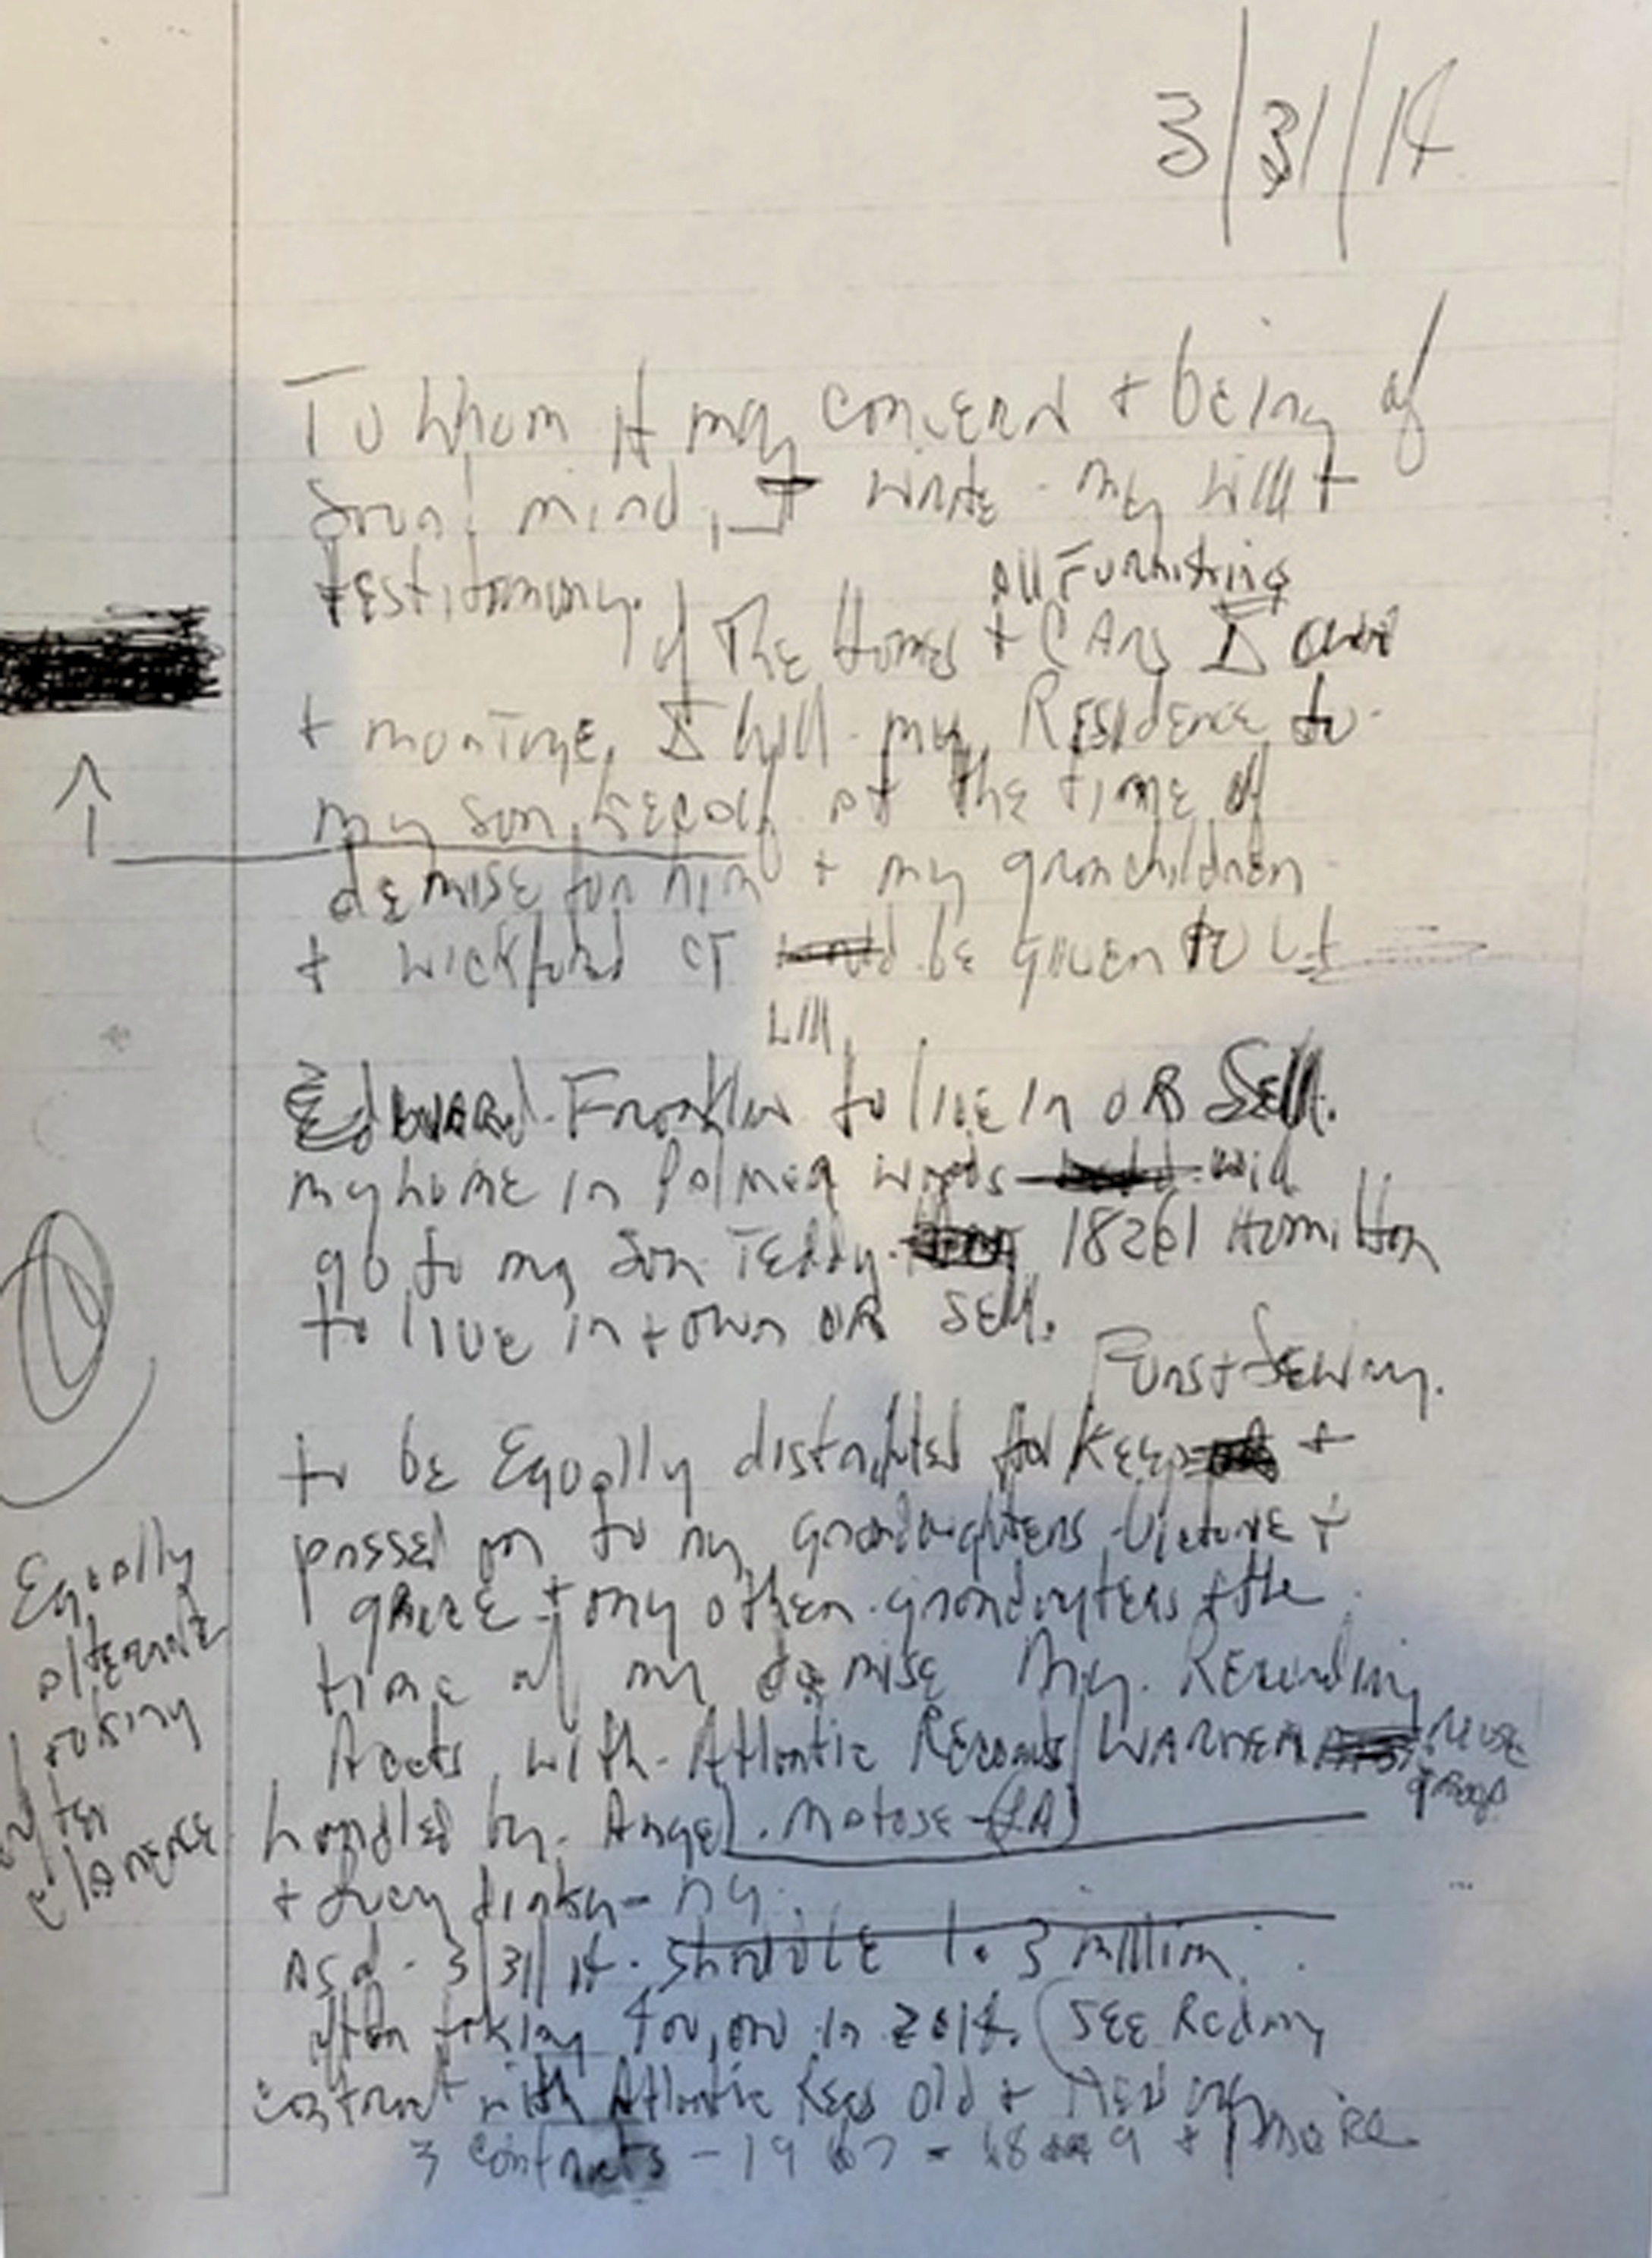 3/31/14
To Whom it may concern + being of
mind, I write my will +
testitomony.
All Furnishings
of The Homes + CARs I
+ I will my Residence to
my son, Kecalf at the time of
demise for him + my granchildren
+ Wickford CT be given to
will
Edward Franklin to live in OR Sell.
my home in Palmer Woods will
go to my Son Teddy. 18261 Hamilton
to live in town OR Sell.
Furs + Jewlry.
to be Equally distributed for Keep +
passed on to my grandaughters Victorie +
grace + any other grandauters the
time of my demise My Recording
Accts with Atlantic Records/WARNER Music
group
handled by. Angel. Matose (LA)
+ dinky - NY.
As of 3/31/14. 1.3 million.
after taking 400,000 in 2014. (SEE Recding
contract with Atlantic Recs Old + New
3 contracts - 1967 - + more
Equally
alternate
taking
after
clarence